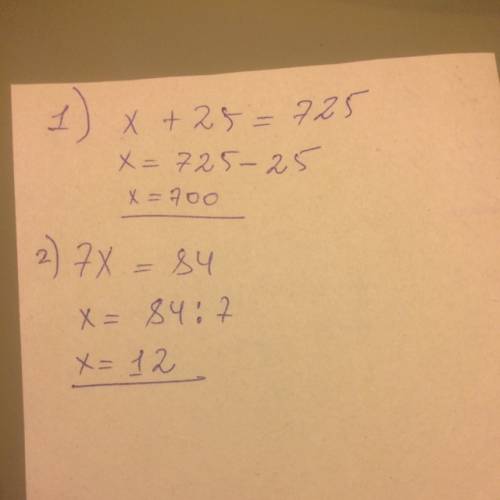 1) x + 25 = 725
x = 725 - 25
x = 700
2) 7x = 84
x = 84 : 7
x = 12